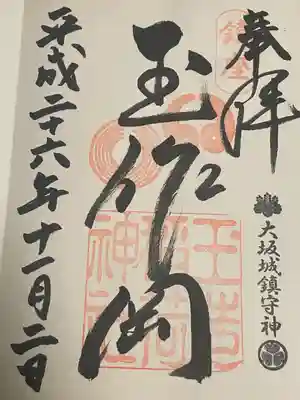 奉拝
大坂城鎮守神
鎮座
玉作岡
玉造
稲荷
神社
平成二十六年十一月二日